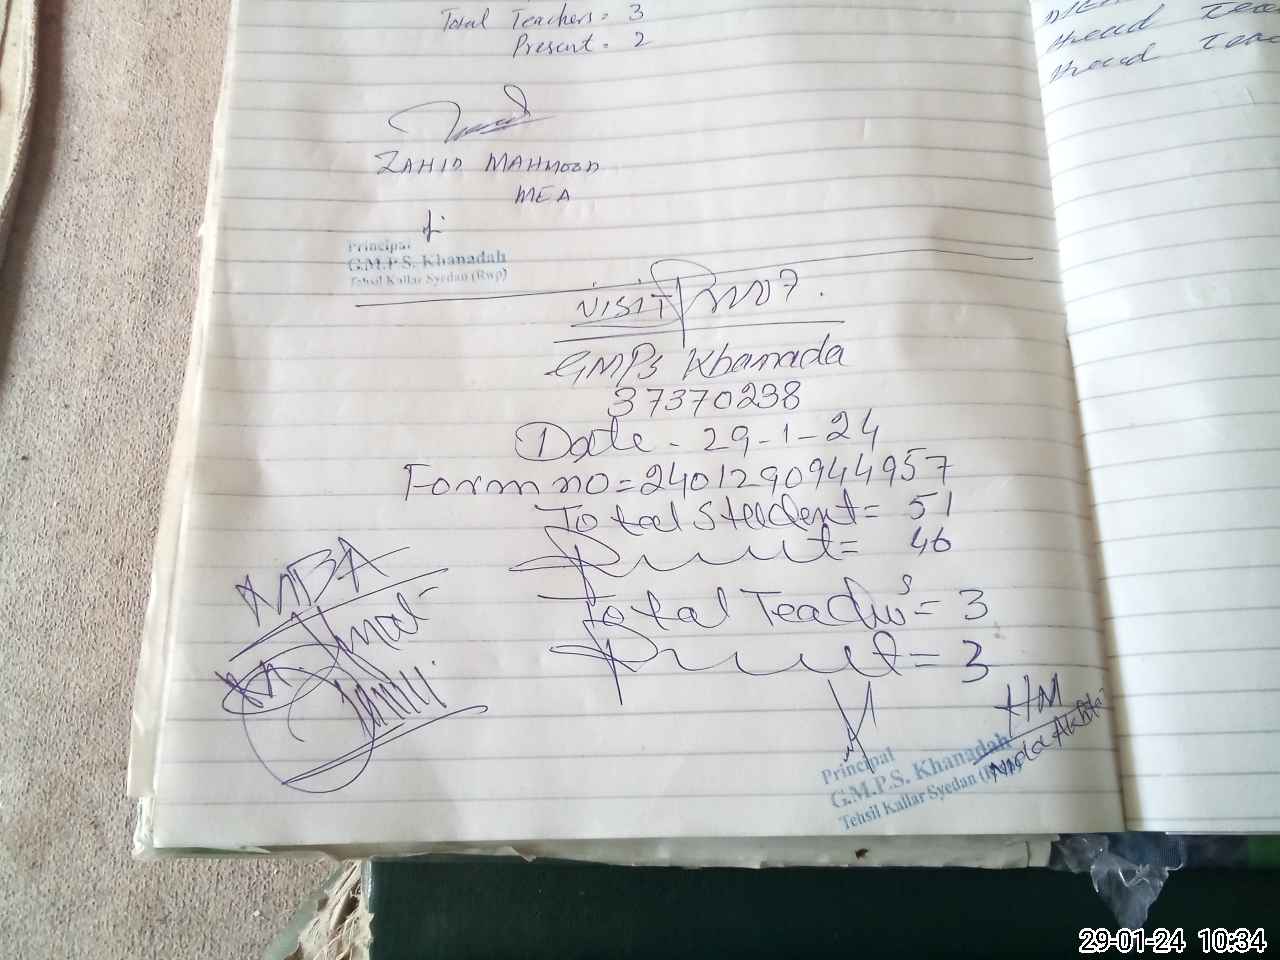 Total Teachers = 3
Present = 2
Head Tea
Head Teac
ZAHID MAHMOOD
MEA
Principal
G.M.P.S. Khanadah
Tehsil Kallar Syedan (Rwp)
VISIT
GMPS Khanada
37370238
Date - 29-1-24
Form no = 2401290944957
Total Student = 51
Prsent = 46
Total Teachers = 3
Prsent = 3
HM
Nida Akhtar
Principal
G.M.P.S. Khanadah
Tehsil Kallar Syedan
29-01-24 10:34